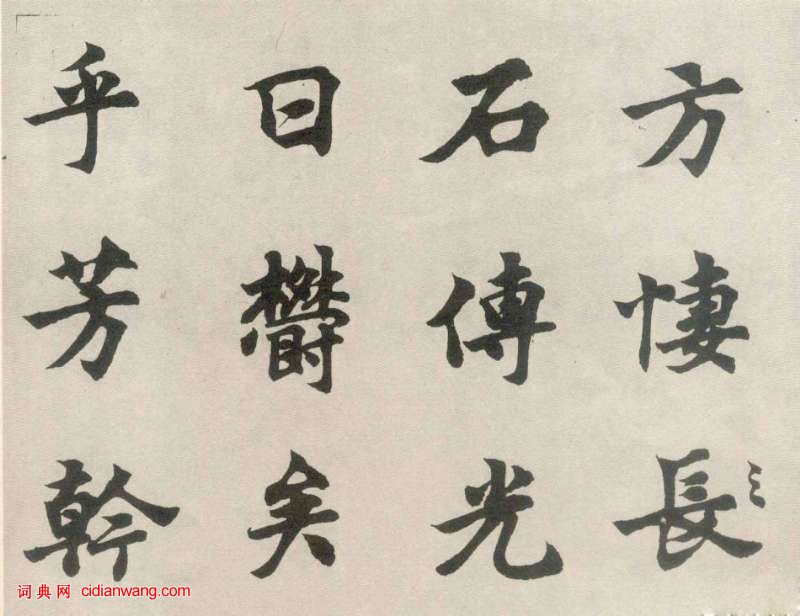 方悽長
石傳光
曰鬱矣
乎芳幹
词典网 cidianwang.com